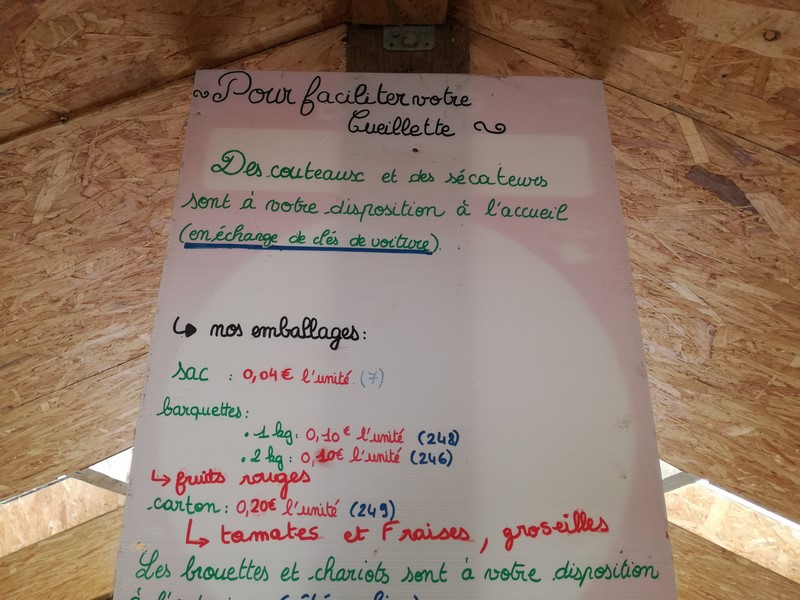 Pour faciliter votre
Cueillette
Des couteaux et des sécateurs
sont à votre disposition à l'accueil
(en échange de clés de voiture).
↳ nos emballages:
sac : 0,04€ l'unité (7)
barquettes:
• 1 kg: 0,10€ l'unité (248)
• 2 kg: 0,10€ l'unité (246)
↳ fruits rouges
carton: 0,20€ l'unité (249)
↳ tamates et Fraises, groseilles
Les brouettes et chariots sont à votre disposition